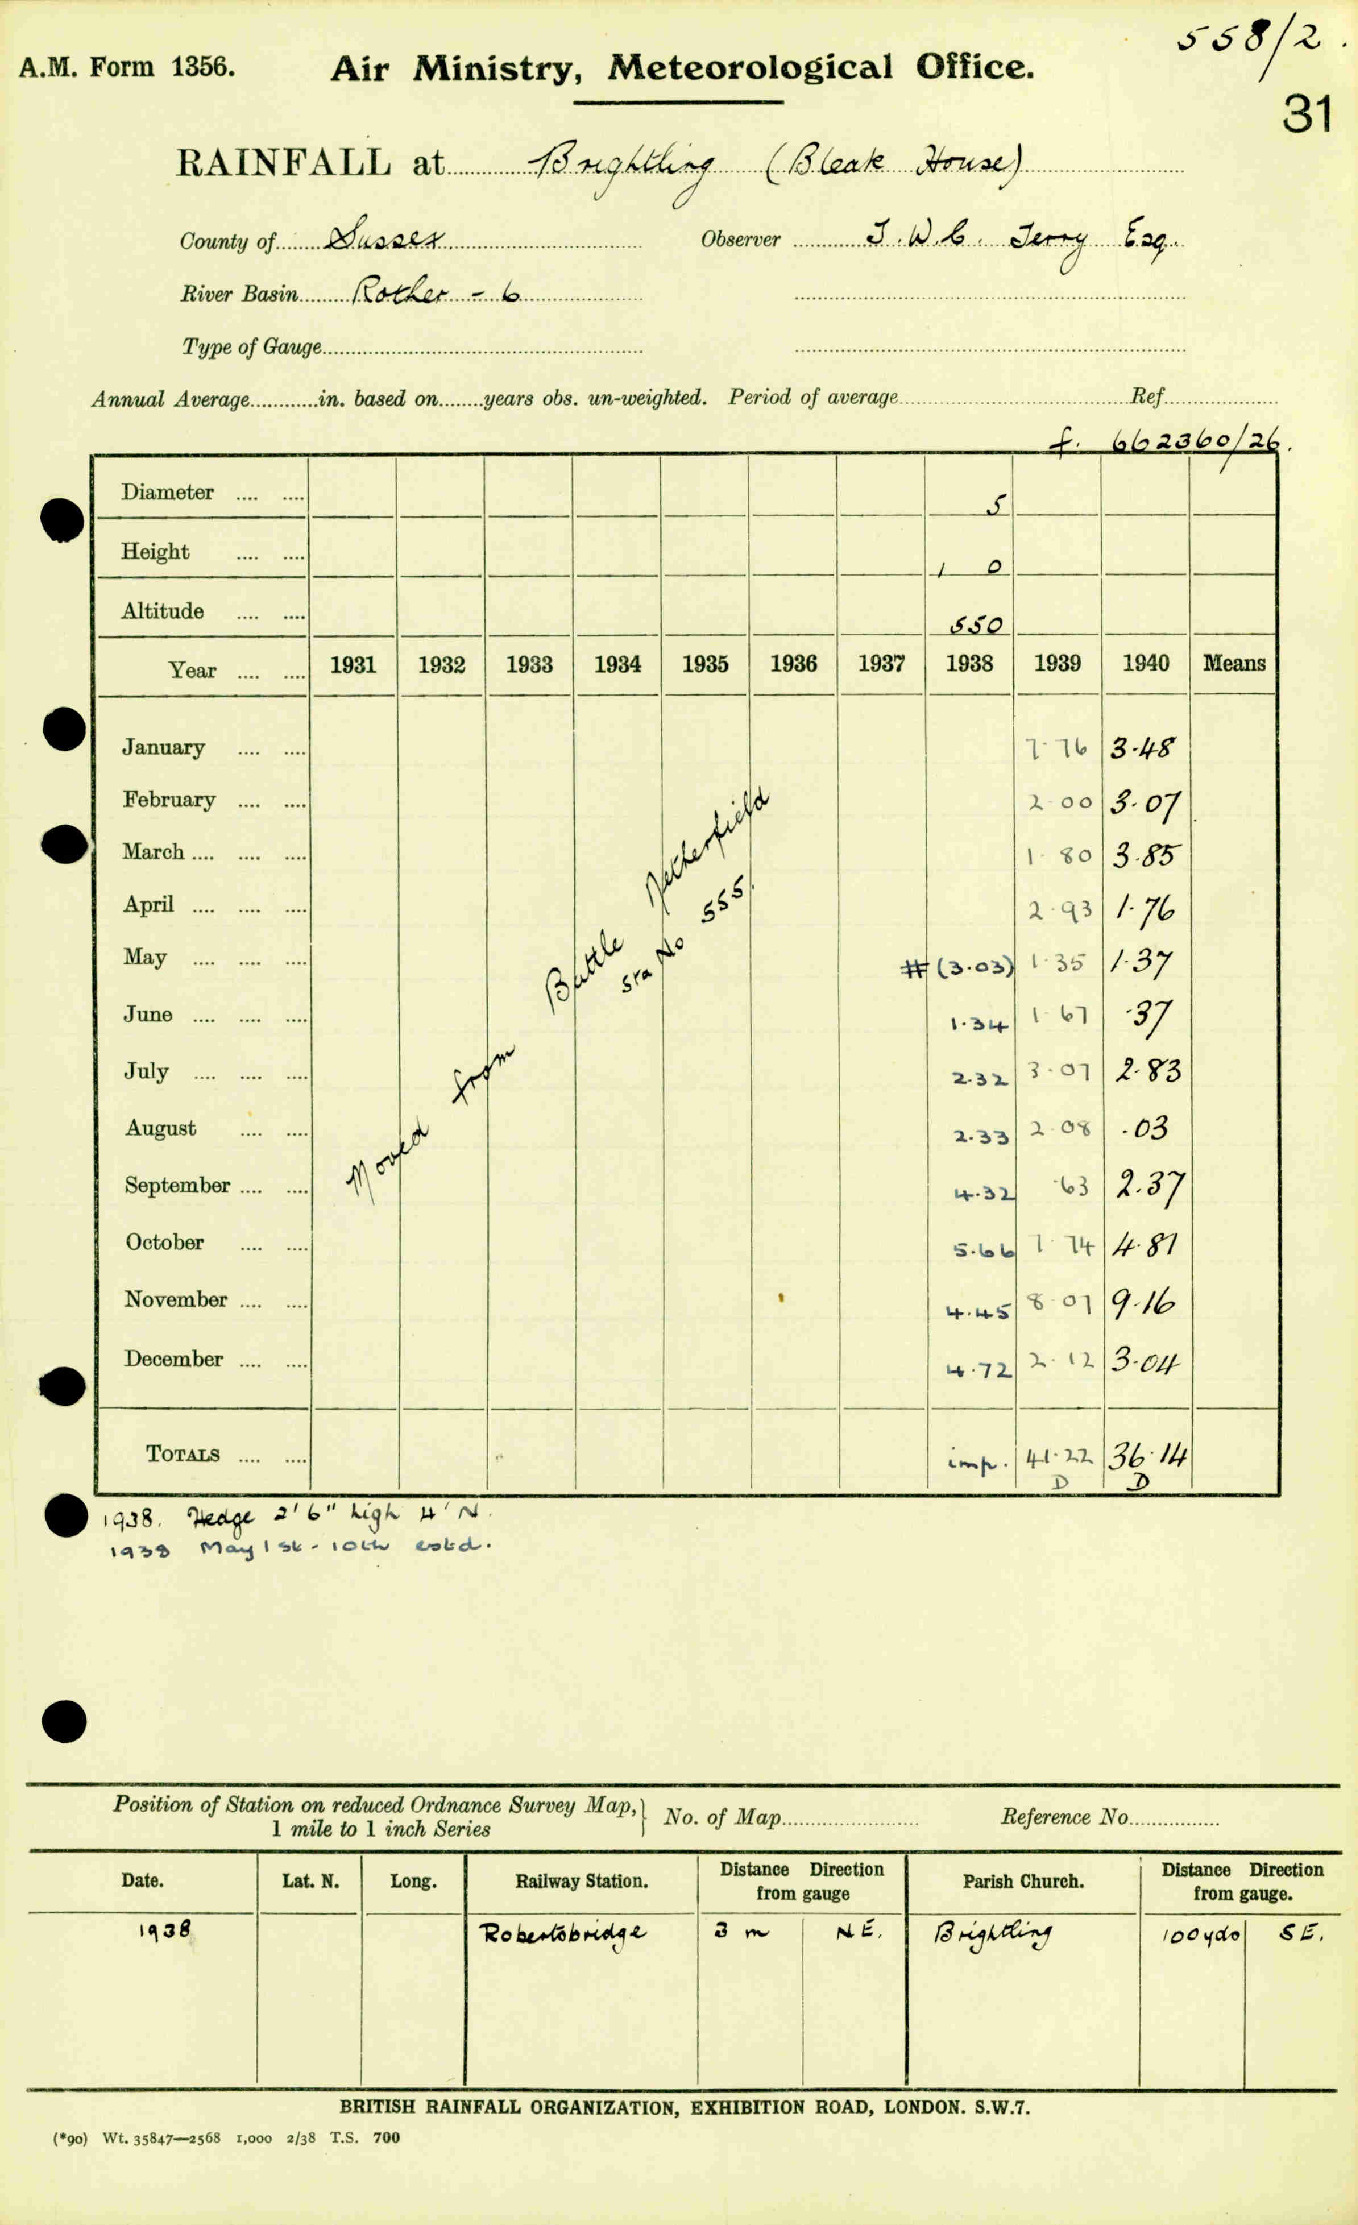 558/2.
A.M. Form 1356. Air Ministry, Meteorological Office.
31
RAINFALL at Brightling (Bleak House)
County of Sussex Observer T.W.C. Terry Esq.
River Basin Rother - 6
Type of Gauge
Annual Average in. based on years obs. un-weighted. Period of average Ref
f. 662360/26.
Diameter 5
Height 1 0
Altitude 550
Year 1931 1932 1933 1934 1935 1936 1937 1938 1939 1940 Means
January 7.76 3.48
February 2.00 3.07
March 1.80 3.85
April 2.93 1.76
May # (3.03) 1.35 1.37
June 1.34 1.67 .37
July 2.32 3.07 2.83
August 2.33 2.08 .03
September 4.32 .63 2.37
October 5.66 7.74 4.81
November 4.45 8.07 9.16
December 4.72 2.12 3.04
Moved from Battle Netherfield
Sta No 555.
TOTALS imp. 41.22 36.14
D D
1938. Hedge 2' 6" high 4' N.
1938 May 1st - 10th estd.
Position of Station on reduced Ordnance Survey Map, 1 mile to 1 inch Series } No. of Map Reference No.
Date. Lat. N. Long. Railway Station. Distance Direction from gauge Parish Church. Distance Direction from gauge.
1938 Robertsbridge 3 m NE. Brightling 100 yds SE.
BRITISH RAINFALL ORGANIZATION, EXHIBITION ROAD, LONDON. S.W.7.
(*90) Wt. 35847—2568 1,000 2/38 T.S. 700